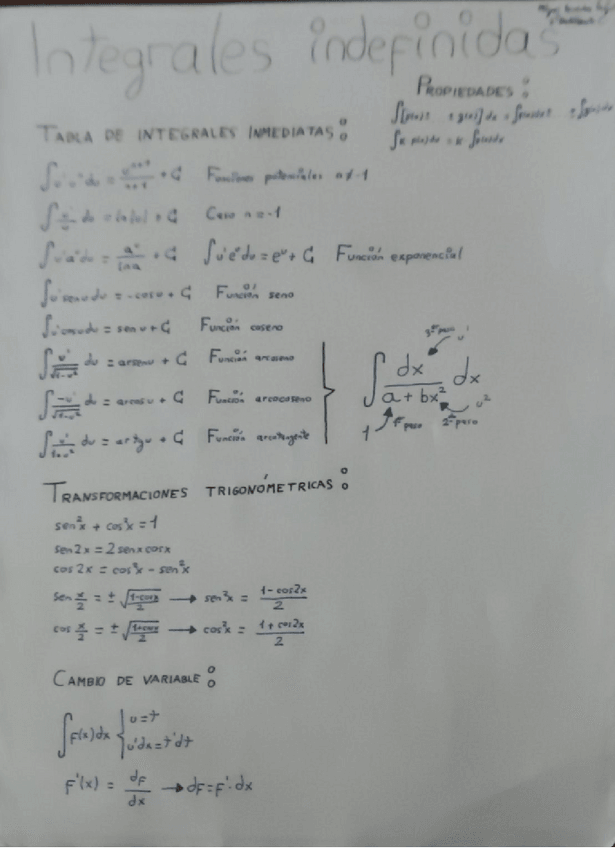 Integrales indefinidas
PROPIEDADES:
∫[f(x) ± g(x)]dx = ∫f(x)dx ± ∫g(x)dx
∫K f(x)dx = K ∫f(x)dx
TABLA DE INTEGRALES INMEDIATAS:
∫u'uⁿdu = uⁿ⁺¹/n+1 + C Funciones potenciales n≠-1
∫u'/u du = ln|u| + C Caso n=-1
∫u'aᵘdu = aᵘ/lna + C ∫u'eᵘdu = eᵘ + C Función exponencial
∫u'senu du = -cosu + C Función seno
∫u'cosu du = senu + C Función coseno
∫u'/√1-u² du = arsenu + C Función arcoseno
∫-u'/√1-u² du = arcosu + C Función arcocoseno
∫u'/1+u² du = artgu + C Función arcotangente
∫dx/a+bx² dx
3er paso u'
1 1er paso
2º paso u²
TRANSFORMACIONES TRIGONÓMETRICAS:
sen²x + cos²x = 1
sen2x = 2senxcosx
cos2x = cos²x - sen²x
sen x/2 = ±√1-cosx/2 → sen²x = 1-cos2x/2
cos x/2 = ±√1+cosx/2 → cos²x = 1+cos2x/2
CAMBIO DE VARIABLE:
∫F(x)dx { u=t
u'dx=t'dt
F'(x) = dF/dx → dF=F'·dx